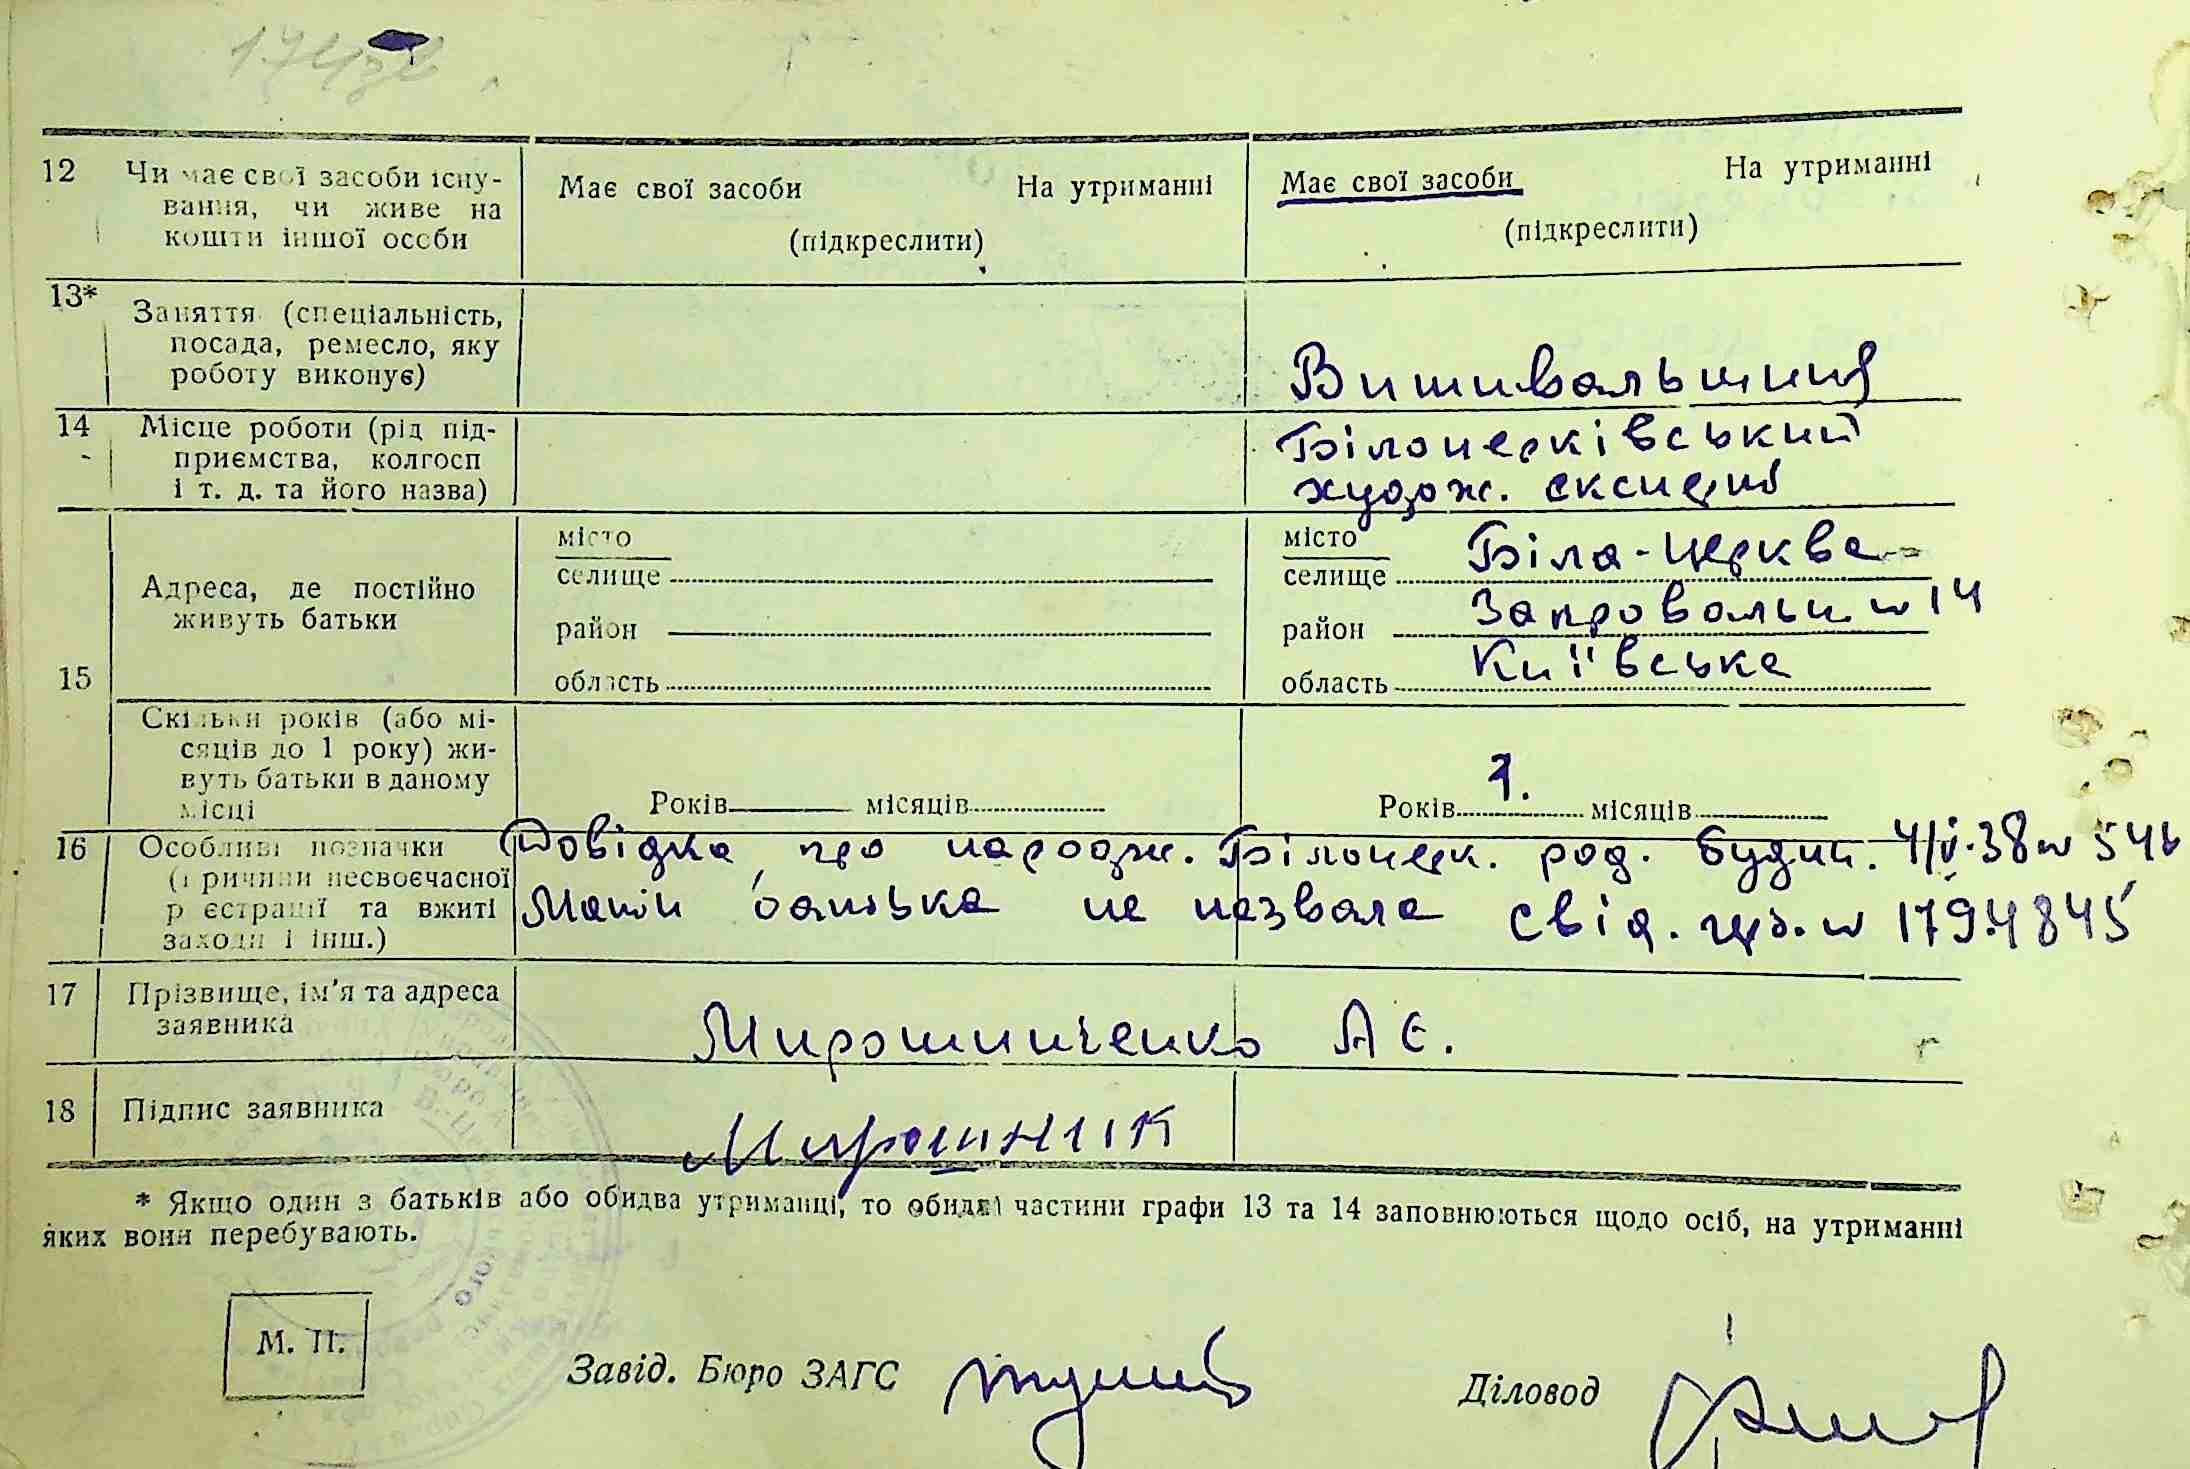 12 Чи має свої засоби існу- Має свої засоби На утриманні Має свої засоби На утриманні
вання, чи живе на
кошти іншої особи (підкреслити) (підкреслити)
13* Заняття (спеціальність,
посада, ремесло, яку
роботу виконує) Вишивальниця
14 Місце роботи (рід під- Білоцерківський
приємства, колгосп худож.
і т. д. та його назва)
місто місто Біла-Церква
селище селище
Адреса, де постійно
живуть батьки район район 14
15 область область Київська
Скільки років (або мі-
сяців до 1 року) жи-
вуть батьки в даному
місці Років місяців Років 1. місяців
16 Особливі позначки Довідка про народж. Білоцерк. род. будин. 4/V.38 № 546
(причини несвоєчасної
реєстрації та вжиті Мати батька не назвала свід. № 1794845
заходи і інш.)
17 Прізвище, ім'я та адреса
заявника Мирошниченко А Є.
18 Підпис заявника Мирошник
* Якщо один з батьків або обидва утриманці, то обидві частини графи 13 та 14 заповнюються щодо осіб, на утриманні
яких вони перебувають.
М. П.
Завід. Бюро ЗАГС Діловод